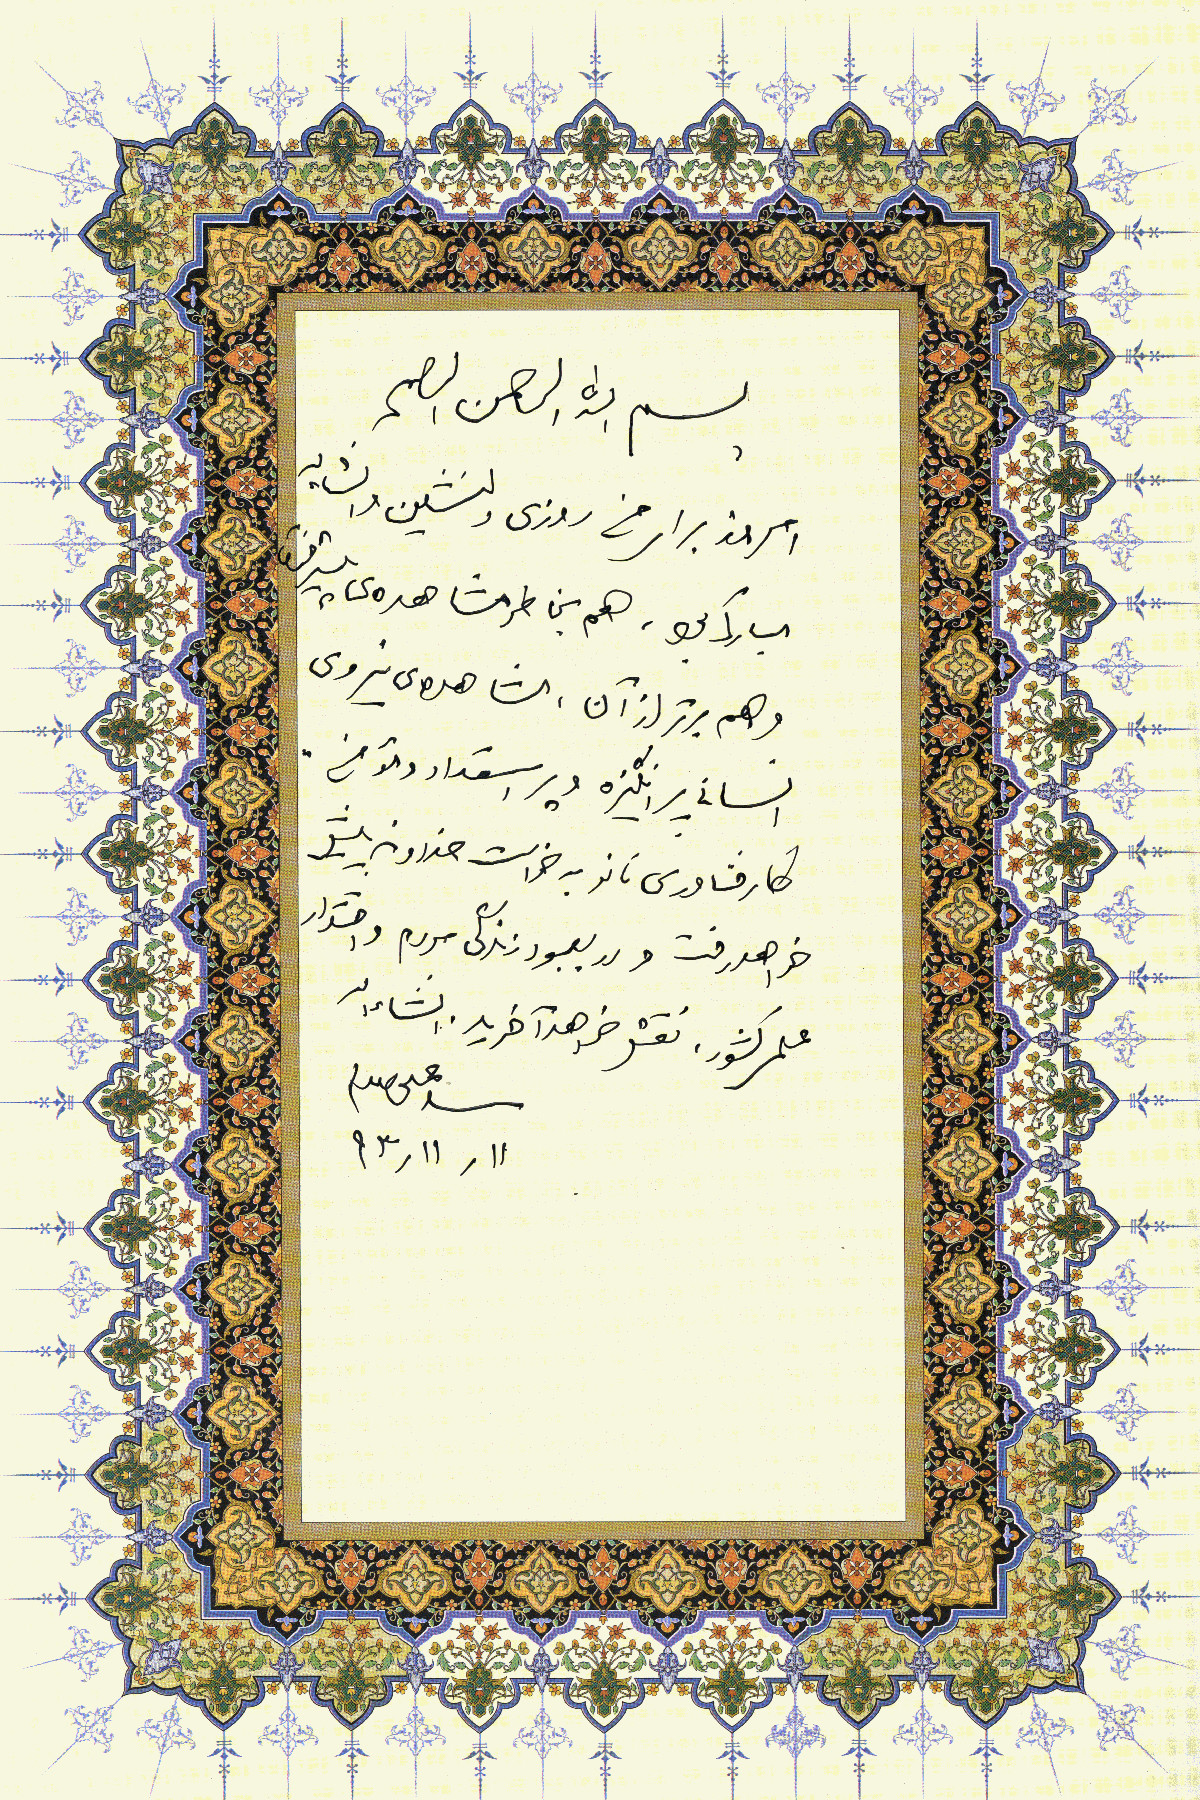 بسم الله الرحمن الرحیم
امروز برای من روزی دلنشین و انشاءالله
مبارک بود، هم بخاطر مشاهده‌ی پیشرفتها
و هم برتر از آن، مشاهده‌ی نیروی
انسانی پرانگیزه و پر استعداد و مؤمن.
کار فناوری نانو به خواست خداوند پیش
خواهد رفت و در بهبود زندگی مردم و اقتدار
علمی کشور، نقش خواهد آفرید. انشاءالله
سید علی خامنه‌ای
۹۳/۱۱/۱۱